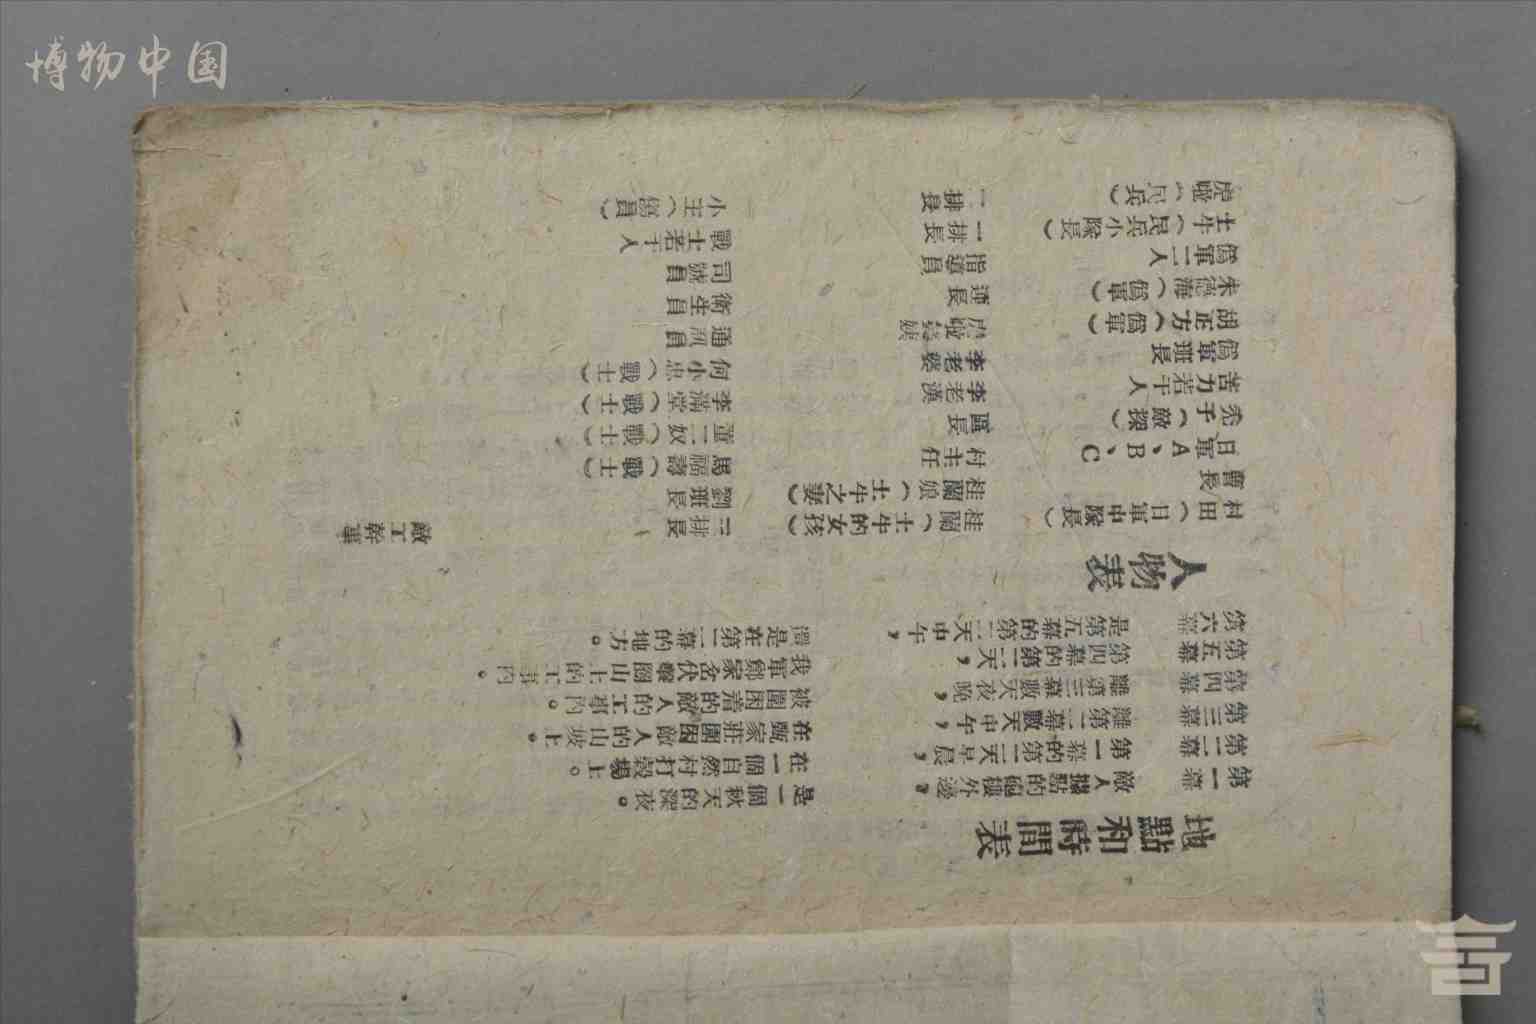 博物中国
地點和時間表
第一幕 敵人據點的砲樓外邊，是一個秋天的深夜。
第二幕 第一幕的第二天早晨，在一個自然村打穀場上。
第三幕 離第二幕數天中午，在甄家莊圍困敵人的山坡上。
第四幕 離第三幕數天夜晚，被圍困着的敵人的工事內。
第五幕 第四幕的第二天，我軍鄭家岔伏擊圈山上的工事內。
第六幕 是第五幕的第二天中午，還是在第二幕的地方。
人物表
村田（日軍中隊長） 桂蘭（土牛的女孩） 三排長 敵工幹事
曹長 桂蘭娘（土牛之妻） 劉班長
日軍A、B、C 村主任 馬福壽（戰士）
禿子（敵探） 區長 董二奴（戰士）
苦力若干人 李老漢 李滿堂（戰士）
偽軍班長 李老婆 何小忠（戰士）
胡正方（偽軍） 通訊員
朱德海（偽軍） 連長 衛生員
偽軍二人 指導員 司號員
土牛（民兵小隊長） 一排長 戰士若干人
虎墩（民兵） 二排長 小王（傷員）